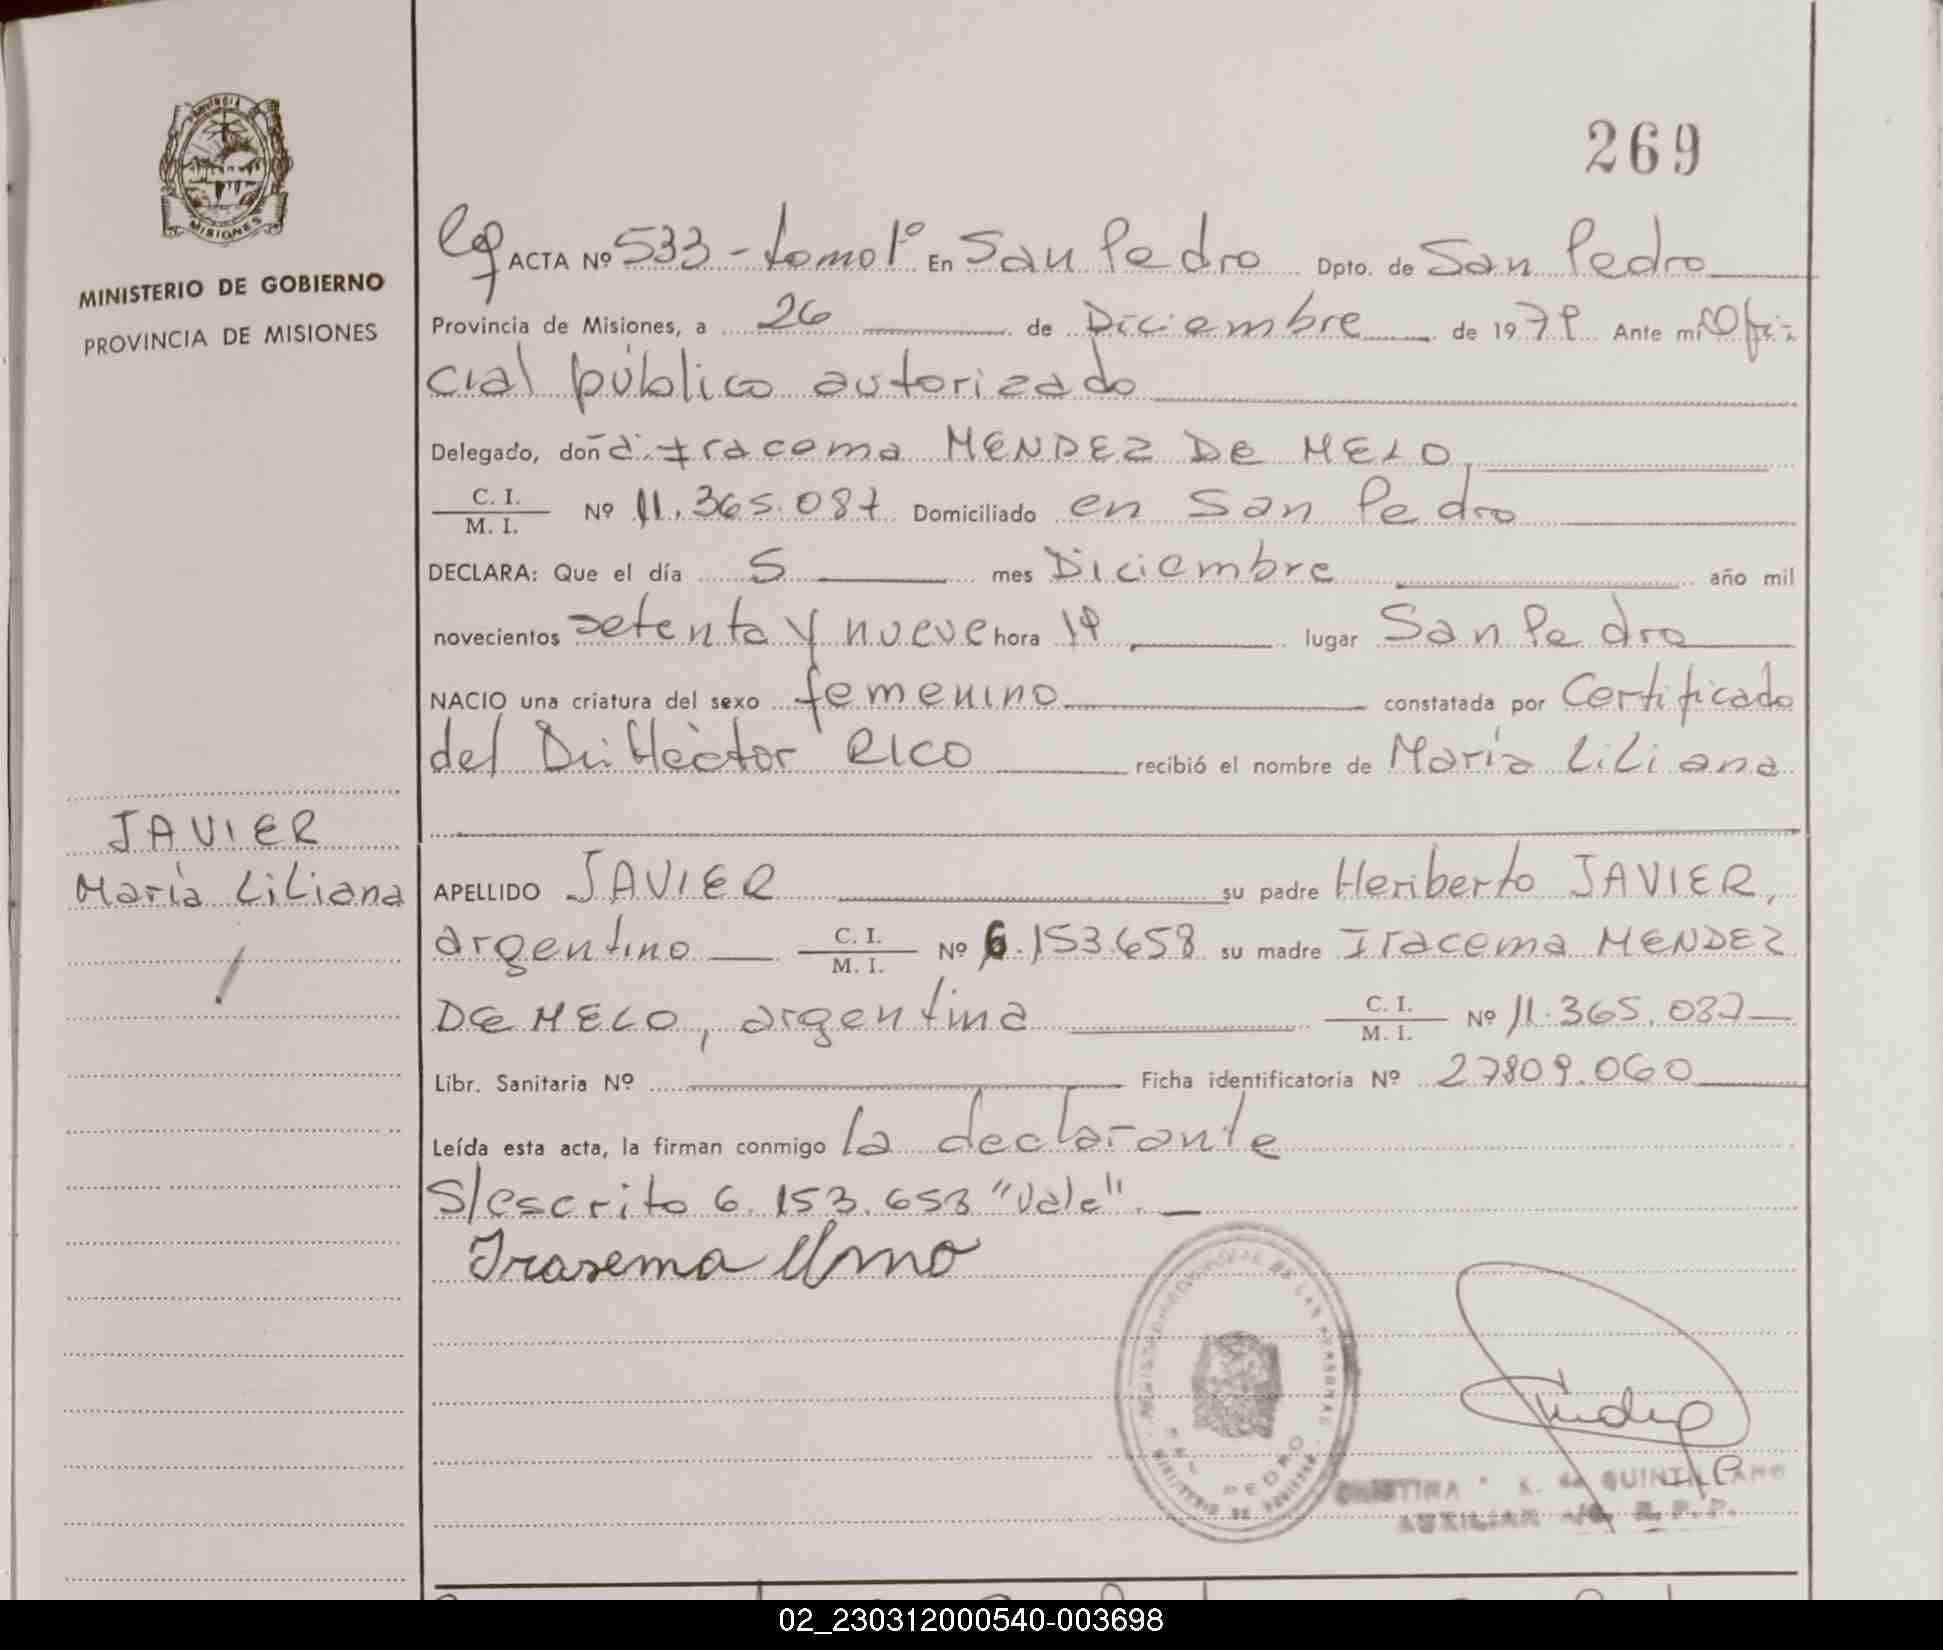 269
MINISTERIO DE GOBIERNO
PROVINCIA DE MISIONES
JAVIER
María Liliana
ACTA Nº 533 - tomo 1º En San Pedro Dpto. de San Pedro
Provincia de Misiones, a 26 de Diciembre de 1979 Ante mi Ofi
cial público autorizado
Delegado, don d. Iracema MENDEZ DE MELO,
C. I.
M. I. Nº 11.365.087 Domiciliado en San Pedro
DECLARA: Que el día 5 mes Diciembre año mil
novecientos setenta y nueve hora 19 lugar San Pedro
NACIO una criatura del sexo femenino constatada por Certificado
del Dr. Héctor RICO recibió el nombre de María Liliana
APELLIDO JAVIER su padre Heriberto JAVIER,
argentino C. I. M. I. Nº 6.153.658 su madre Iracema MENDEZ
DE MELO, argentina C. I. M. I. Nº 11.365.087
Libr. Sanitaria Nº Ficha identificatoria Nº 27809.060
Leída esta acta, la firman conmigo la declarante
S/escrito 6.153.658 "Vale".
Irasema
SAN PEDRO
CRISTINA K. de QUINTILLANO
AUXILIAR R. P. P.
02_230312000540-003698